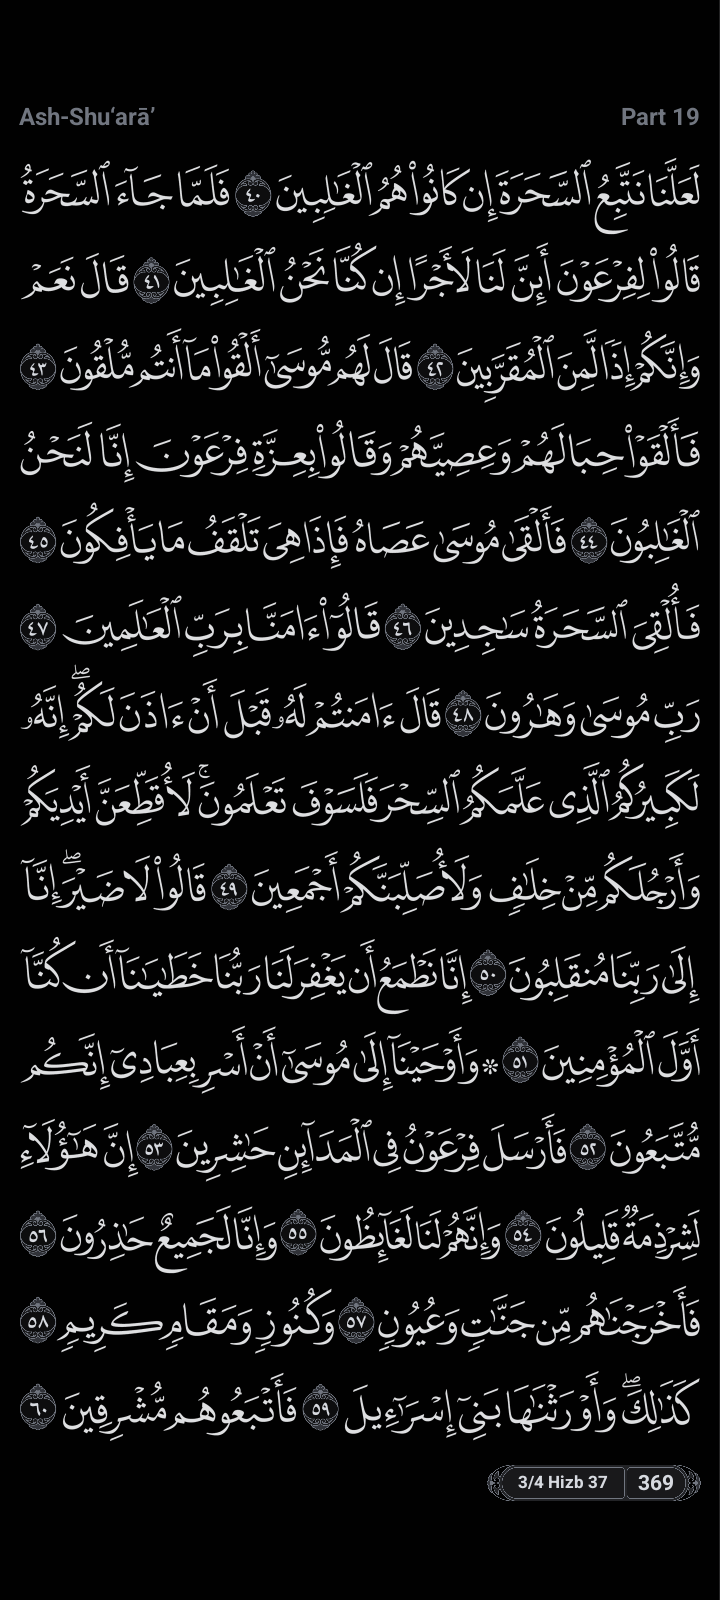 Ash-Shu‘arā’
Part 19
لَعَلَّنَا نَتَّبِعُ ٱلسَّحَرَةَ إِن كَانُوا۟ هُمُ ٱلْغَـٰلِبِينَ ٤٠ فَلَمَّا جَآءَ ٱلسَّحَرَةُ
قَالُوا۟ لِفِرْعَوْنَ أَئِنَّ لَنَا لَأَجْرًا إِن كُنَّا نَحْنُ ٱلْغَـٰلِبِينَ ٤١ قَالَ نَعَمْ
وَإِنَّكُمْ إِذًا لَّمِنَ ٱلْمُقَرَّبِينَ ٤٢ قَالَ لَهُم مُّوسَىٰٓ أَلْقُوا۟ مَآ أَنتُم مُّلْقُونَ ٤٣
فَأَلْقَوْا۟ حِبَالَهُمْ وَعِصِيَّهُمْ وَقَالُوا۟ بِعِزَّةِ فِرْعَوْنَ إِنَّا لَنَحْنُ
ٱلْغَـٰلِبُونَ ٤٤ فَأَلْقَىٰ مُوسَىٰ عَصَاهُ فَإِذَا هِىَ تَلْقَفُ مَا يَأْفِكُونَ ٤٥
فَأُلْقِىَ ٱلسَّحَرَةُ سَـٰجِدِينَ ٤٦ قَالُوٓا۟ ءَامَنَّا بِرَبِّ ٱلْعَـٰلَمِينَ ٤٧
رَبِّ مُوسَىٰ وَهَـٰرُونَ ٤٨ قَالَ ءَامَنتُمْ لَهُۥ قَبْلَ أَنْ ءَاذَنَ لَكُمْ ۖ إِنَّهُۥ
لَكَبِيرُكُمُ ٱلَّذِى عَلَّمَكُمُ ٱلسِّحْرَ فَلَسَوْفَ تَعْلَمُونَ ۚ لَأُقَطِّعَنَّ أَيْدِيَكُمْ
وَأَرْجُلَكُم مِّنْ خِلَـٰفٍ وَلَأُصَلِّبَنَّكُمْ أَجْمَعِينَ ٤٩ قَالُوا۟ لَا ضَيْرَ ۖ إِنَّآ
إِلَىٰ رَبِّنَا مُنقَلِبُونَ ٥٠ إِنَّا نَطْمَعُ أَن يَغْفِرَ لَنَا رَبُّنَا خَطَـٰيَـٰنَآ أَن كُنَّآ
أَوَّلَ ٱلْمُؤْمِنِينَ ٥١ ۞ وَأَوْحَيْنَآ إِلَىٰ مُوسَىٰٓ أَنْ أَسْرِ بِعِبَادِىٓ إِنَّكُم
مُّتَّبَعُونَ ٥٢ فَأَرْسَلَ فِرْعَوْنُ فِى ٱلْمَدَآئِنِ حَـٰشِرِينَ ٥٣ إِنَّ هَـٰٓؤُلَآءِ
لَشِرْذِمَةٌ قَلِيلُونَ ٥٤ وَإِنَّهُمْ لَنَا لَغَآئِظُونَ ٥٥ وَإِنَّا لَجَمِيعٌ حَـٰذِرُونَ ٥٦
فَأَخْرَجْنَـٰهُم مِّن جَنَّـٰتٍ وَعُيُونٍ ٥٧ وَكُنُوزٍ وَمَقَامٍ كَرِيمٍ ٥٨
كَذَٰلِكَ ۖ وَأَوْرَثْنَـٰهَا بَنِىٓ إِسْرَٰٓءِيلَ ٥٩ فَأَتْبَعُوهُم مُّشْرِقِينَ ٦٠
3/4 Hizb 37
369